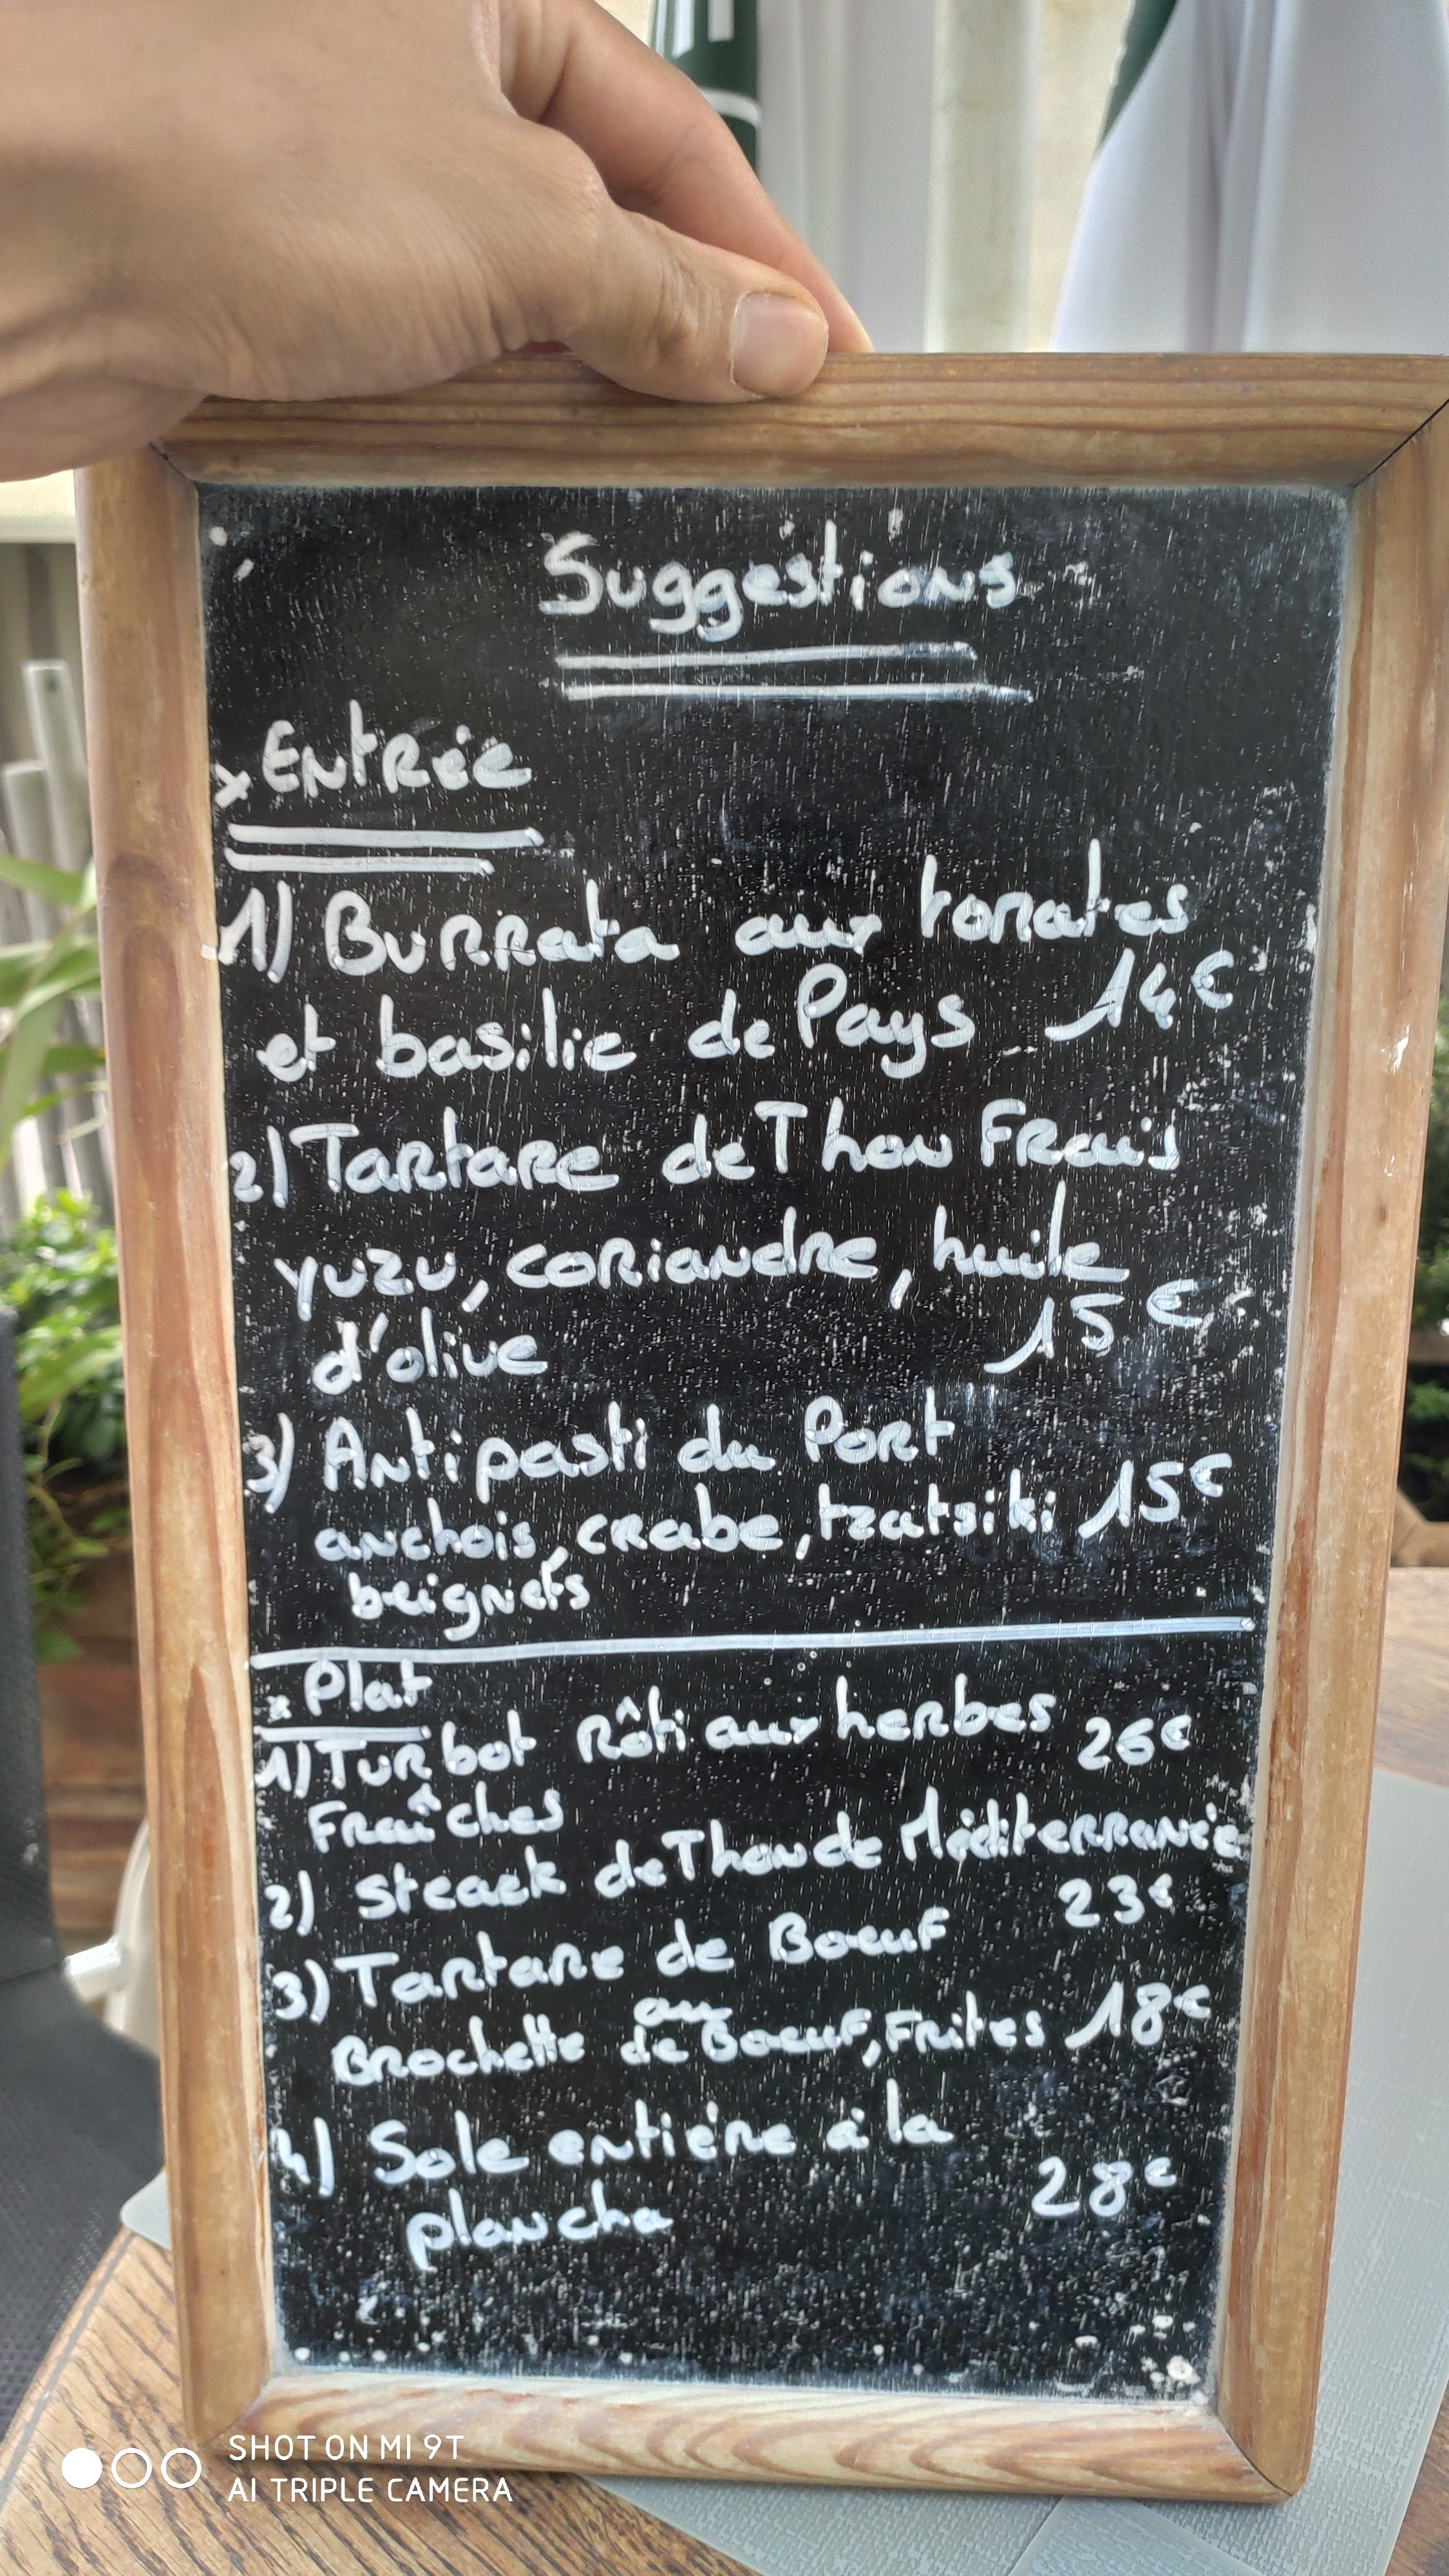 Suggestions
x Entrée
1) Burrata aux tomates
et basilic de Pays 14€
2) Tartare de Thon Frais
yuzu, coriandre, huile
d'olive 15€
3) Antipasti du Port
anchois, crabe, tzatsiki 15€
beignets
x Plat
1) Turbot Rôti aux herbes 26€
Fraîches
2) Steack de Thon de Méditerranée
23€
3) Tartare de Boeuf
ou
Brochette de Boeuf, Frites 18€
4) Sole entière à la
plancha 28€
SHOT ON MI 9T
AI TRIPLE CAMERA